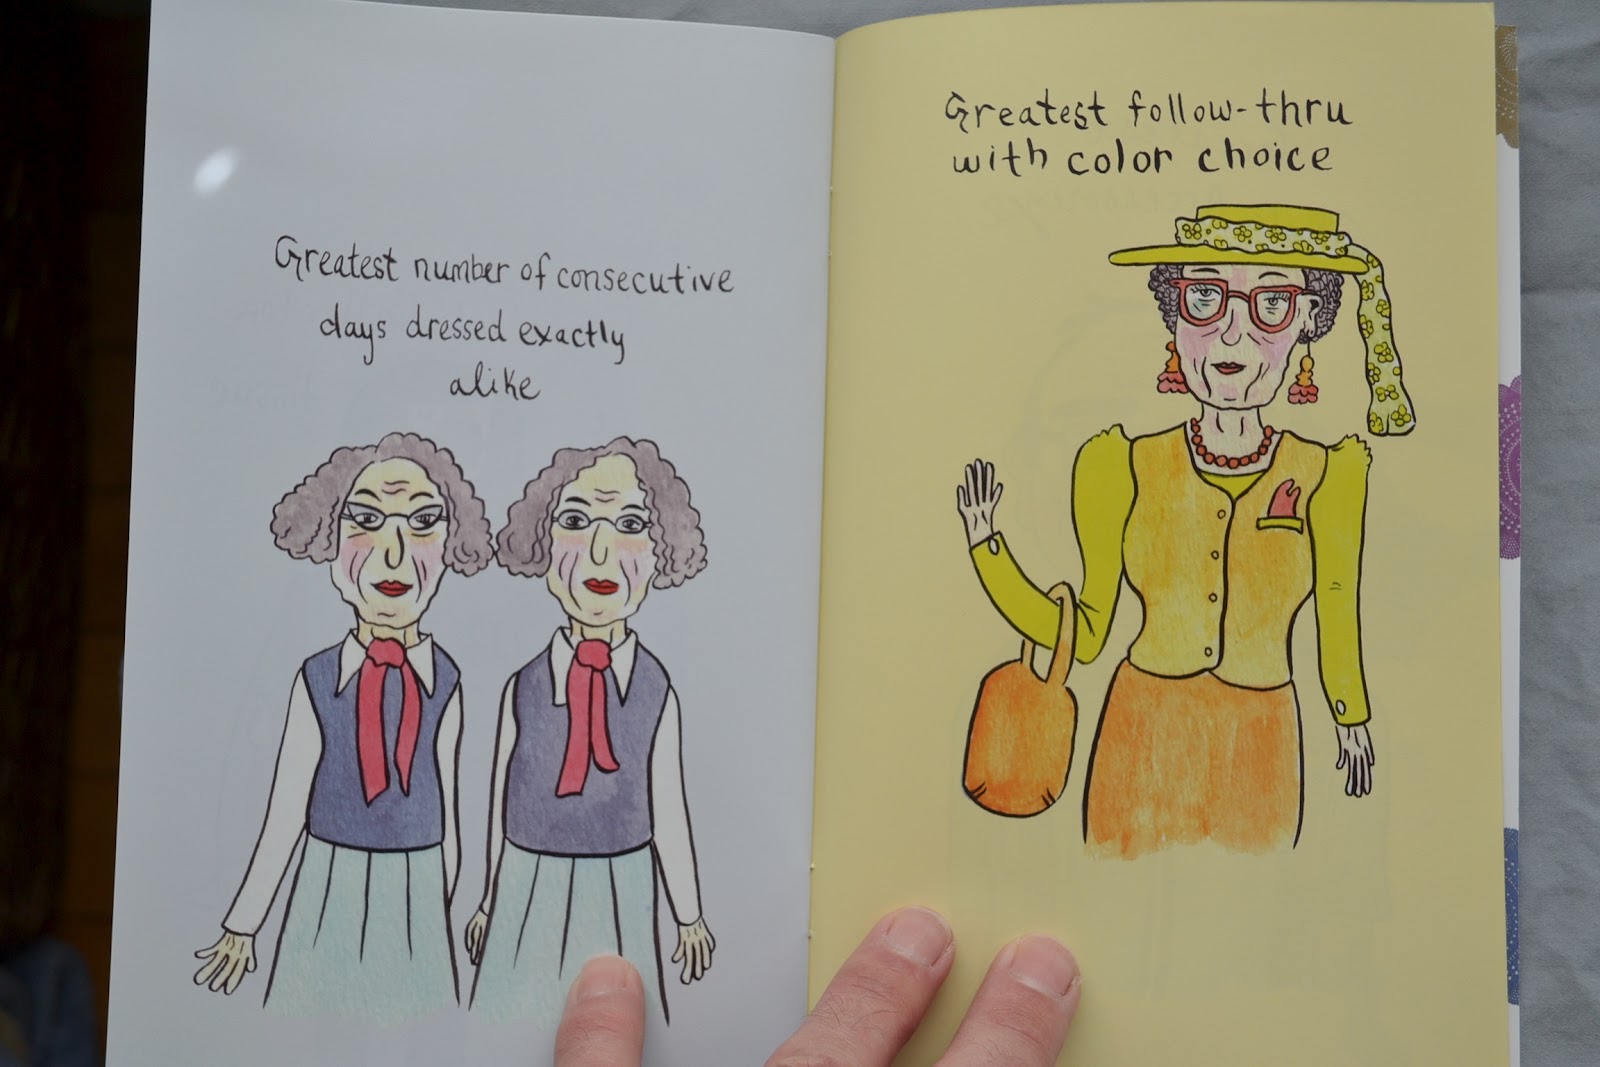 Greatest number of consecutive
days dressed exactly
alike
Greatest follow-thru
with color choice